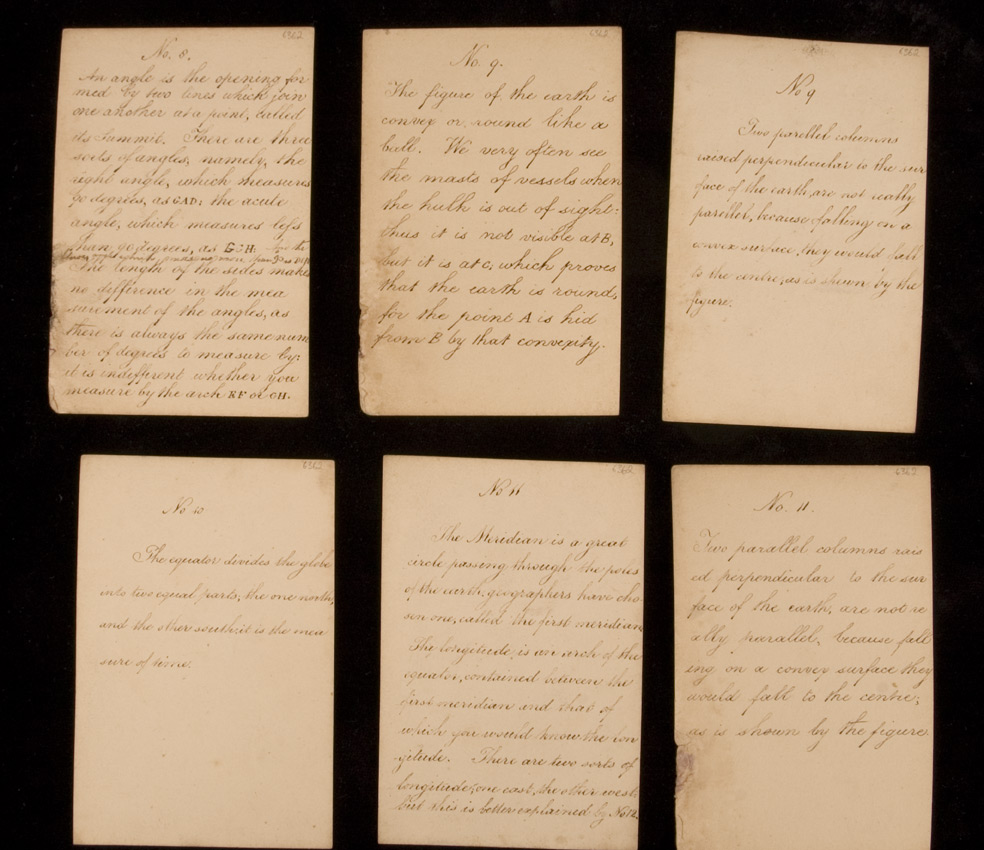 6362
No. 8.
An angle is the opening for
med by two lines which join
one another at a point, called
its Summit. There are three
sorts of angles, namely, the
right angle, which measures
90 degrees, as GAD; the acute
angle, which measures less
than 90 degrees, as
The length of the sides makes
no difference in the mea
surement of the angles, as
there is always the same num
ber of degrees to measure by:
it is indifferent whether you
measure by the arch EF or GH.
6362
No. 9.
The figure of the earth is
convex or round like a
ball. We very often see
the masts of vessels when
the hulk is out of sight:
thus it is not visible at B,
but it is at C; which proves
that the earth is round,
for the point A is hid
from B by that convexity.
6362
No 9
Two parellel columns
raised perpendicular to the sur
face of the earth, are not really
parellel, because falling on a
convex surface, they would fall
to the centre; as is shewn by the
figure.
6362
No 10
The equator divides the globe
into two equal parts; the one north,
and the other south: it is the mea
sure of time.
6362
No 11
The Meridian is a great
circle passing through the poles
of the earth, geographers have cho
sen one, called the first meridian
The longitude is an arch of the
equator, contained between the
first meridian and that of
which you would know the lon
gitude. There are two sorts of
longitude; one east, the other west
but this is better explained by No 12.
6362
No. 11.
Two parallel columns rais
ed perpendicular to the sur
face of the earth, are not re
ally parallel, because fall
ing on a convex surface they
would fall to the centre;
as is shown by the figure.